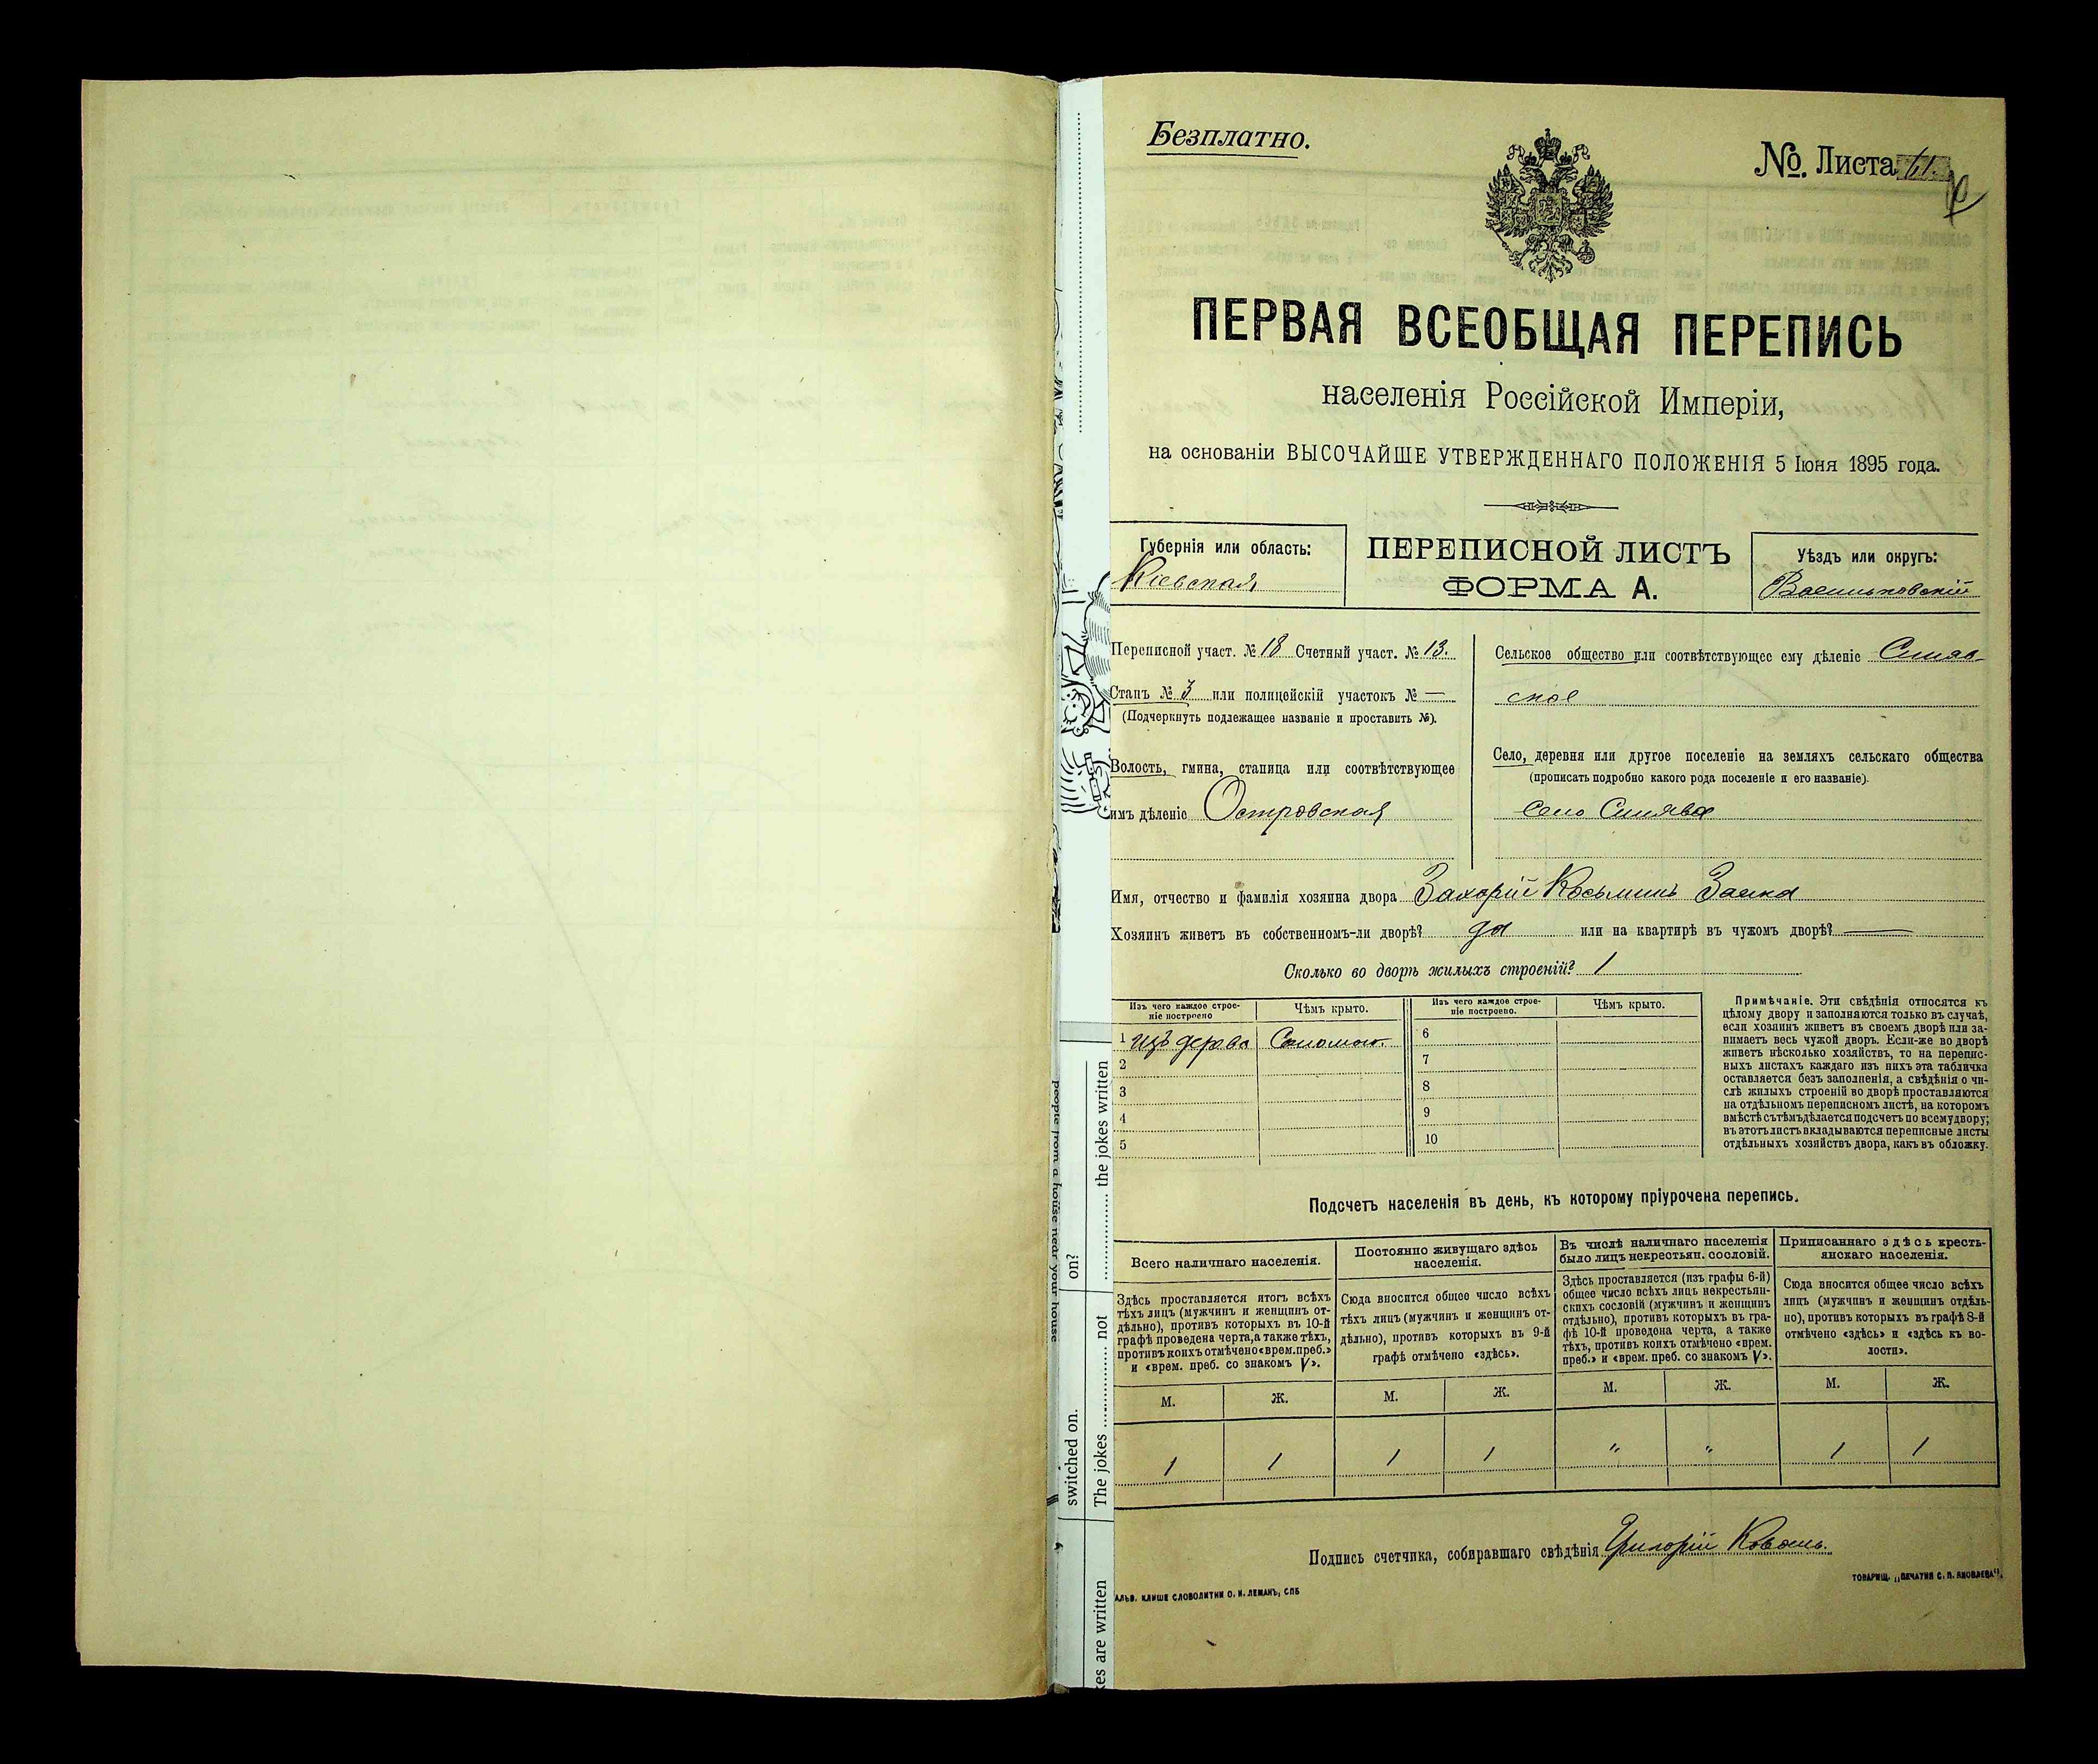 Безплатно.
№. Листа 61.
ПЕРВАЯ ВСЕОБЩАЯ ПЕРЕПИСЬ
населенія Россійской Имперіи,
на основаніи ВЫСОЧАЙШЕ УТВЕРЖДЕННАГО ПОЛОЖЕНІЯ 5 Іюня 1895 года.
Губернія или область:
Кіевская
ПЕРЕПИСНОЙ ЛИСТЪ
ФОРМА А.
Уѣздъ или округъ:
Васильковскій
Переписной участ. № 18 Счетный участ. № 13.
Станъ № 3 или полицейскій участокъ № —
(Подчеркнуть подлежащее названіе и проставить №).
Волость, гмина, станица или соотвѣтствующее
имъ дѣленіе Островская
Сельское общество или соотвѣтствующее ему дѣленіе Синяв-
ское
Село, деревня или другое поселеніе на земляхъ сельскаго общества
(прописать подробно какого рода поселеніе и его названіе).
село Синява
Имя, отчество и фамилія хозяина двора Захарій Косьминъ Заика
Хозяинъ живетъ въ собственномъ-ли дворѣ? да или на квартирѣ въ чужомъ дворѣ? —
Сколько во дворѣ жилыхъ строеній? 1
Изъ чего каждое строе-
ніе построено
Чѣмъ крыто.
Изъ чего каждое строе-
ніе построено.
Чѣмъ крыто.
1 изъ дерева Соломою.
2
3
4
5
6
7
8
9
10
Примѣчаніе. Эти свѣдѣнія относятся къ
цѣлому двору и заполняются только въ случаѣ,
если хозяинъ живетъ въ своемъ дворѣ или за-
нимаетъ весь чужой дворъ. Если-же во дворѣ
живетъ нѣсколько хозяйствъ, то на перепис-
ныхъ листахъ каждаго изъ нихъ эта табличка
оставляется безъ заполненія, а свѣдѣнія о чи-
слѣ жилыхъ строеній во дворѣ проставляются
на отдѣльномъ переписномъ листѣ, на которомъ
вмѣстѣ съ тѣмъ дѣлается подсчетъ по всему двору;
въ этотъ листъ вкладываются переписные листы
отдѣльныхъ хозяйствъ двора, какъ въ обложку.
Подсчетъ населенія въ день, къ которому пріурочена перепись.
Всего наличнаго населенія.
Здѣсь проставляется итогъ всѣхъ
тѣхъ лицъ (мужчинъ и женщинъ от-
дѣльно), противъ которыхъ въ 10-й
графѣ проведена черта, а также тѣхъ,
противъ коихъ отмѣчено «врем. преб.»
и «врем. преб. со знакомъ V».
Постоянно живущаго здѣсь
населенія.
Сюда вносится общее число всѣхъ
тѣхъ лицъ (мужчинъ и женщинъ от-
дѣльно), противъ которыхъ въ 9-й
графѣ отмѣчено «здѣсь».
Въ числѣ наличнаго населенія
было лицъ некрестьян. сословій.
Здѣсь проставляется (изъ графы 6-й)
общее число всѣхъ лицъ некрестьян-
скихъ сословій (мужчинъ и женщинъ
отдѣльно), противъ которыхъ въ гра-
фѣ 10-й проведена черта, а также
тѣхъ, противъ коихъ отмѣчено «врем.
преб.» и «врем. преб. со знакомъ V».
Приписаннаго здѣсь кресть-
янскаго населенія.
Сюда вносится общее число всѣхъ
лицъ (мужчинъ и женщинъ отдѣль-
но), противъ которыхъ въ графѣ 8-й
отмѣчено «здѣсь» и «здѣсь къ во-
лости».
М. Ж. М. Ж. М. Ж. М. Ж.
1 1 1 1 " " 1 1
Подпись счетчика, собиравшаго свѣдѣнія Григорій Коваль.
АЛЬВ. КЛИШЕ СЛОВОЛИТНИ О. И. ЛЕМАНЪ, СПБ
ТОВАРИЩ. „ПЕЧАТНЯ С. П. ЯКОВЛЕВА".
people from a house near your house
switched on. on?
The jokes not the jokes written
are written